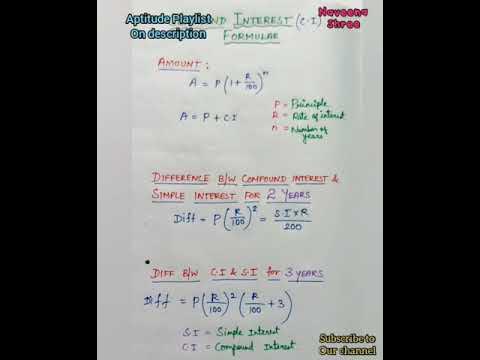 Aptitude Playlist
On description
Naveena
Shree
INTEREST (C.I)
FORMULAE
AMOUNT :
A = P(1 + R/100)^n
A = P + C.I
P = Principle
R = Rate of interest
n = Number of
years
DIFFERENCE B/W COMPOUND INTEREST &
SIMPLE INTEREST FOR 2 YEARS
Diff = P(R/100)^2 = S.I x R/200
DIFF B/W C.I & S.I for 3 YEARS
Diff = P(R/100)^2 (R/100 + 3)
S.I = Simple Interest
C.I = Compound Interest
Subscribe to
Our channel